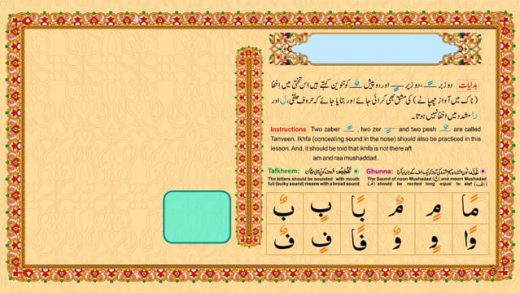 ہدایات دو زبر ـً ، دو زیر ـٍ اور دو پیش ـٌ کو تنوین کہتے ہیں اس تختی میں اخفا
(ناک میں آواز چھپانے) کی مشق بھی کرائی جائے اور بتایا جائے کہ حروف حلقی، ل اور
را مشدد میں اخفا نہیں ہوتا۔
Instructions Two zaber ـً , two zer ـٍ and two pesh ـٌ are called
Tanveen. Ikhfa (concealing sound in the nose) should also be practiced in this
lesson. And, it should be told that ikhfa is not there aft
am and raa mushaddad.
Ghunna:
The Sound of noon Mushadad (نّ) and meem Mushadad
(مّ) should be recited long equal to alaf (الف)
Tafkheem:
The letters should be sounded with mouth
full (bulky sound) means with a broad sound
مًا مٍ مٌ بًا بٍ بٌ
وًا وٍ وٌ فًا فٍ فٌ